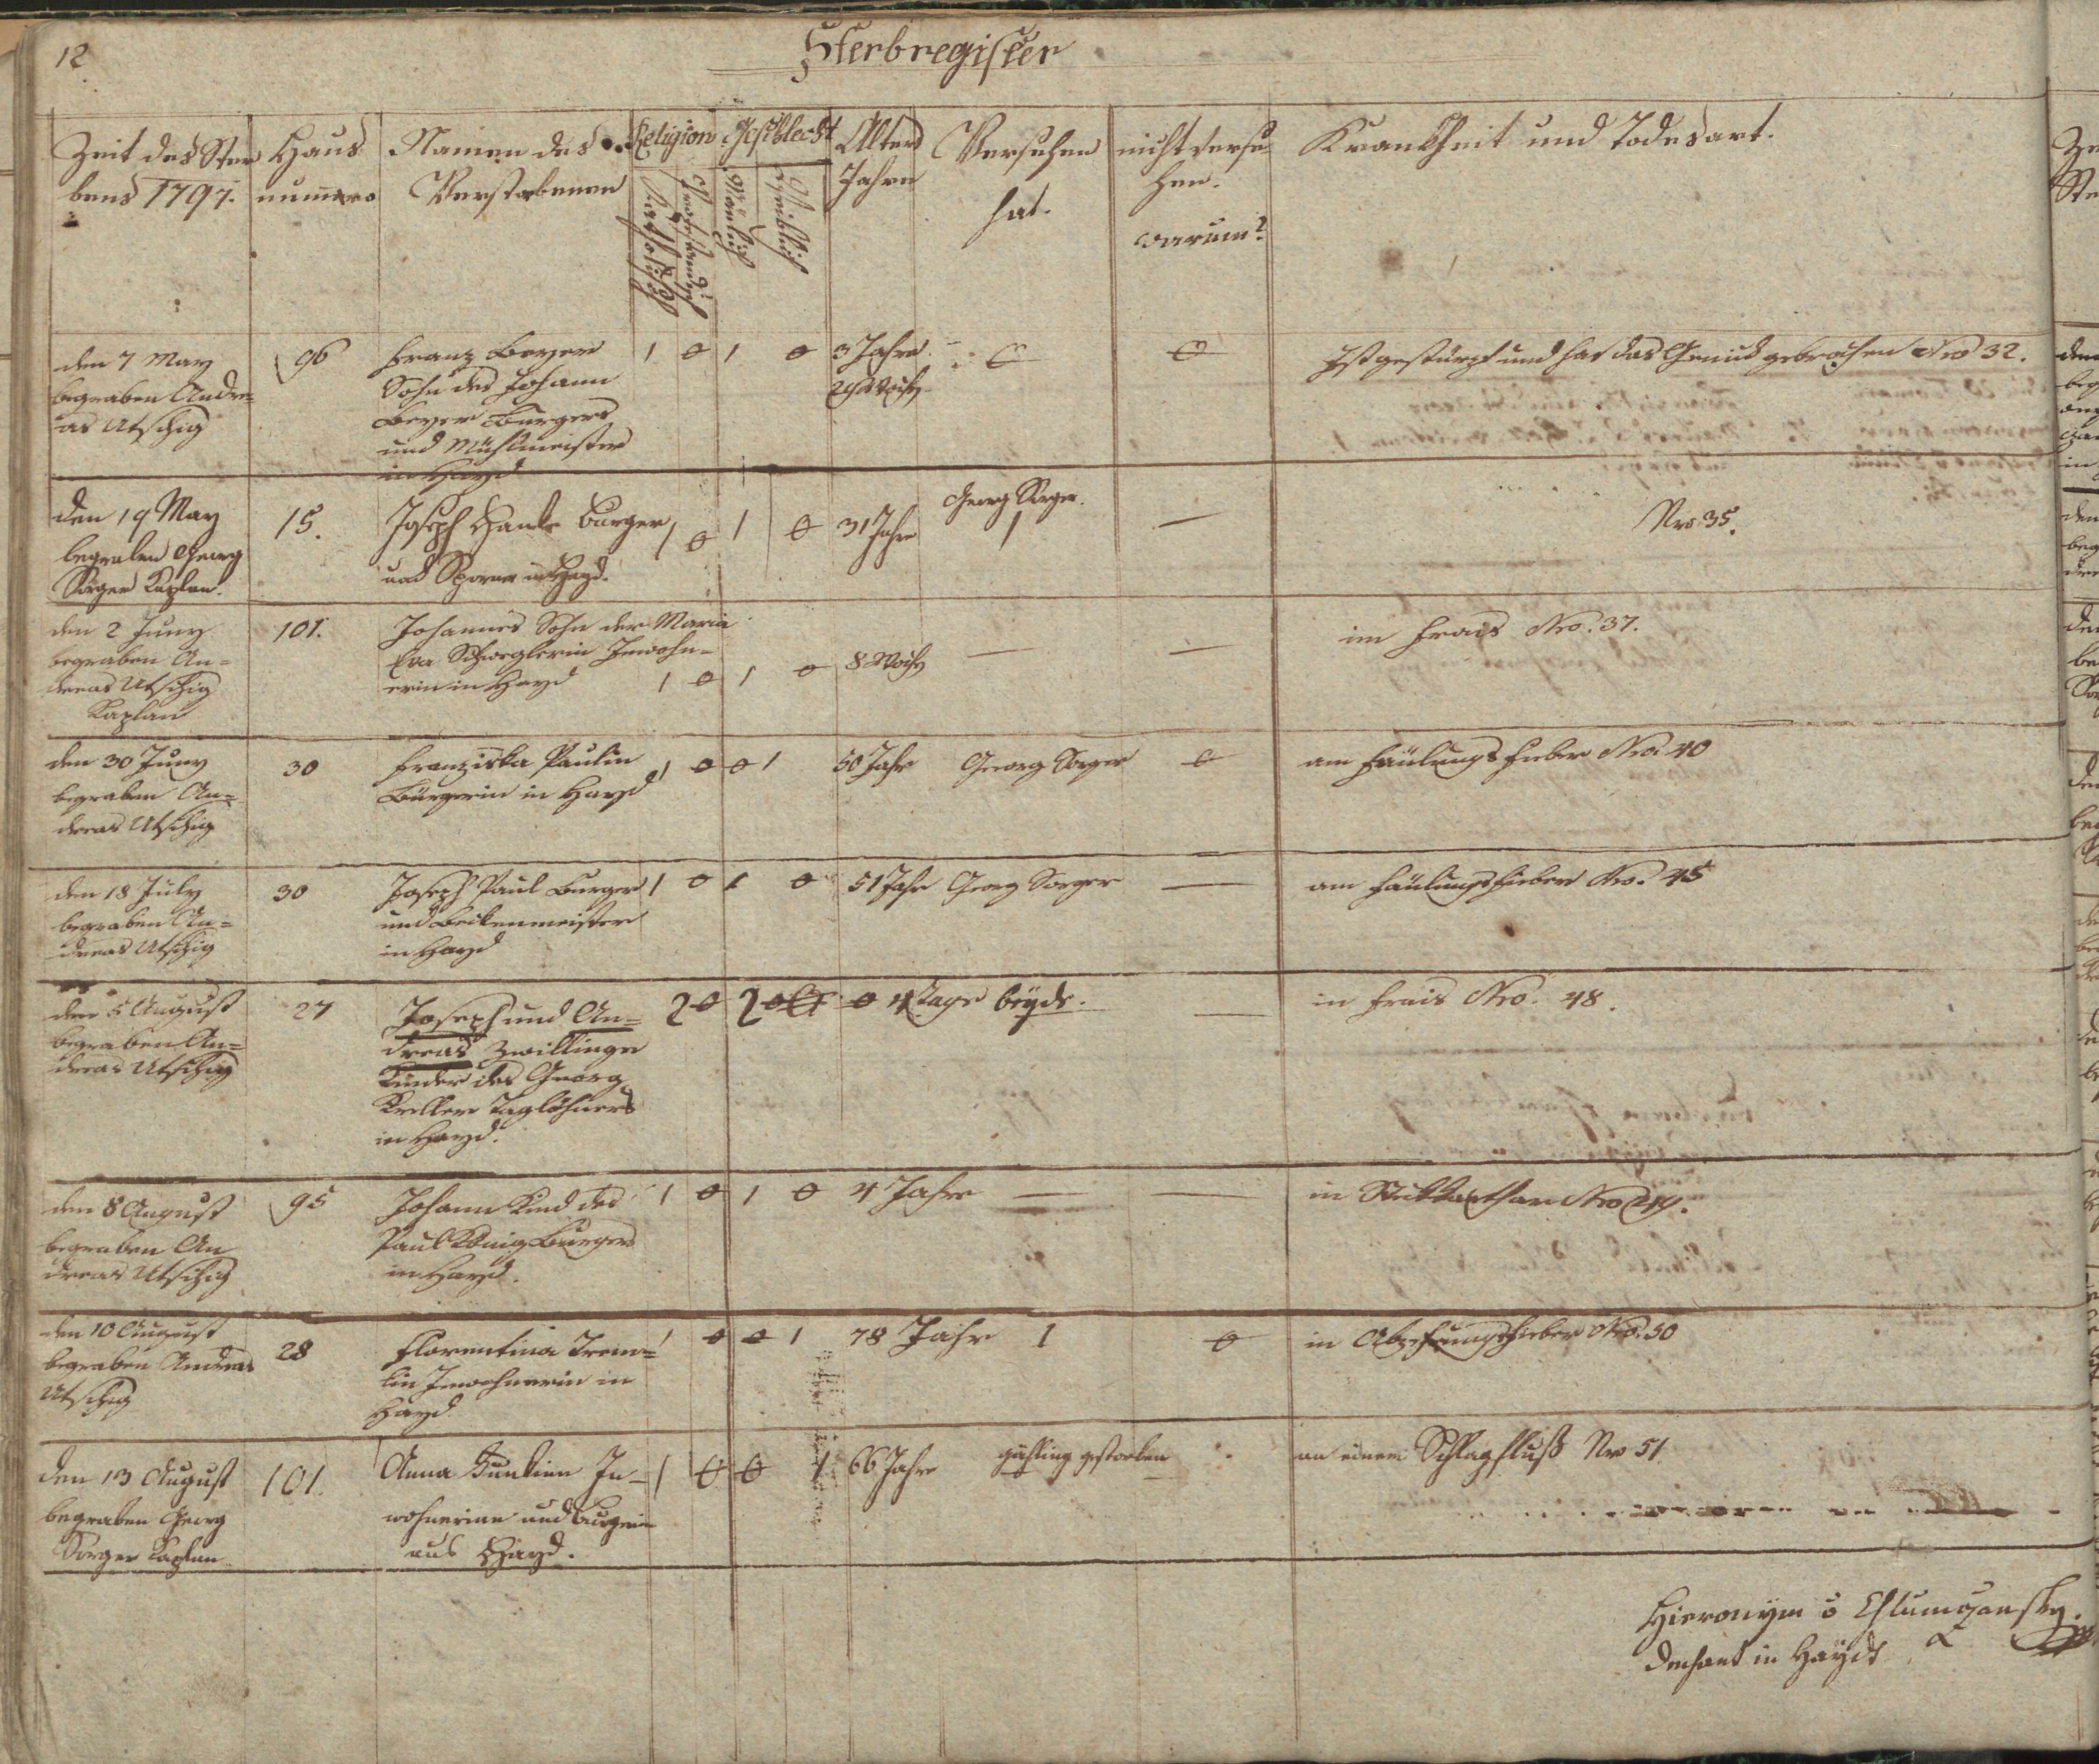 12
Sterbregister
Zeit des Ster
bens 1797.
Haus
numero
Namen des
Verstorbenen
Religion
Katholisch
Protestantisch
Geschlecht
Mänlich
Weiblich
Alters
Jahre
Versehen
hat.
nicht verse
hen.
warum?
Krankheit und Todesart.
den 7 May
begraben Andre=
as Utschig
96
Franz Beyer
Sohn des Johann
Beyer Burgers
und Mühlmeister
in Hayd
1 0 1 0
3 Jahre
0
0
Ist gestürzt und hat das Genick gebrochen Nro 32.
den 19 May
begraben Georg
Sorger Kaplan.
15.
Joseph Hanke Burger
und Sporer in Hayd.
1 0 1 0
31 Jahre
Georg Sorger.
1
—
Nro 35.
den 2 Juny
begraben An=
dreas Utschig
Kaplan
101.
Johannes Sohn der Maria
Eva Schweglerin Inwohn=
erin in Hayd
1 0 1 0
8 Woch
—
—
im Frais Nro. 37.
den 30 Juny
begraben An=
dreas Utschig
30
Franziska Paulin
Bürgerin in Hayd
1 0 0 1
50 Jahr
Georg Sorger
0
am Fäulungsfieber Nro. 40
den 18 July
begraben An=
dreas Utschig
30
Joseph Paul Burger
und Beckenmeister
in Hayd
1 0 1 0
51 Jahr
Georg Sorger
—
am Fäulungsfieber Nro. 45
den 5 August
begraben An=
dreas Utschig
27
Joseph und An=
dreas Zwillinge
Kinder des Georg
Keller Taglöhners
in Hayd.
2 0 2 0
4 Tage beyde.
—
in Frais Nro. 48.
den 8 August
begraben An
dreas Utschig
95
Johann Kind des
Paul König Burgers
in Hayd.
1 0 1 0
4 Jahre
—
—
in Stickkathar Nro 49.
den 10 August
begraben Andreas
Utschig
28
Florentina Trem=
lin Inwohnerin in
Hayd
1 0 0 1
78 Jahr
1
0
in Abzehrungsfieber Nro. 50
den 13 August
begraben Georg
Sorger Kaplan
101.
Anna Juntinn In-
wohnerinn und Burgerin
aus Hayd.
1 0 0 1
66 Jahre
gähling gestorben
an einem Schlagfluß Nro 51
Hieronym v Chlumczansky.
Dechant in Haydt